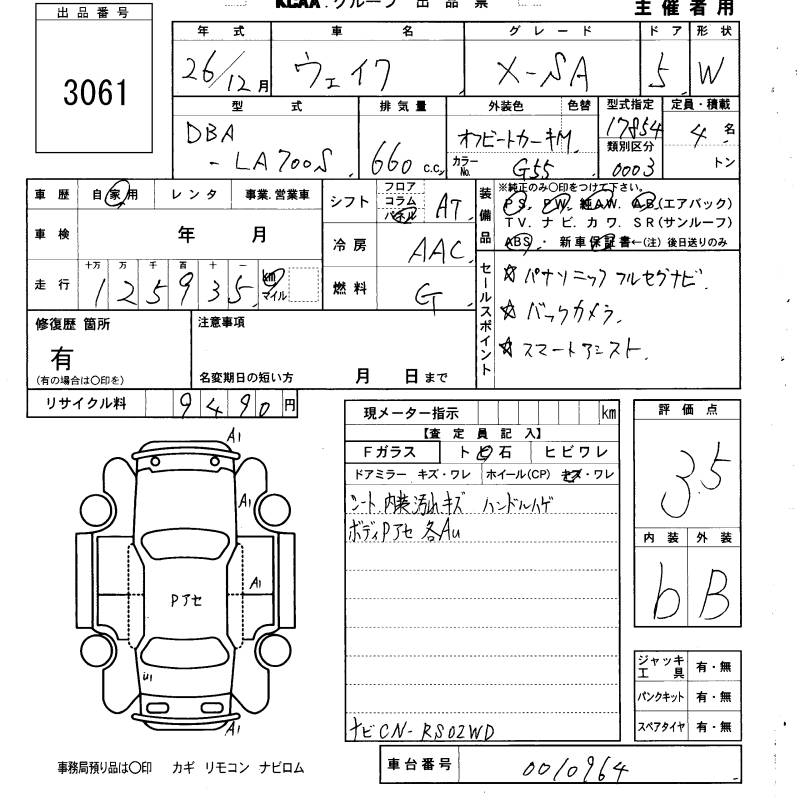 KCAA グループ 出品票
主催者用
出品番号
3061
年式 車名 グレード ドア 形状
26/12月 ウェイク X-SA 5 W
型式 排気量 外装色 色替 型式指定 定員・積載
DBA-LA700S 660 C.C. オフビートカーキM 17854 4名
カラーNo. G55 類別区分 0003 トン
車歴 自家用 レンタ 事業.営業車
シフト フロア コラム パネル AT
装備品 ※純正のみ〇印をつけて下さい。
PS. PW. 純AW. AB.(エアバック)
TV. ナビ. カワ. SR(サンルーフ)
ABS. ・ 新車保証書←(注) 後日送りのみ
車検 年 月
冷房 AAC
走行 十万 万 千 百 十 一
125935 km マイル
燃料 G
セールスポイント
☆ パナソニックフルセグナビ.
☆ バックカメラ.
☆ スマートアシスト.
修復歴 箇所
有
(有の場合は〇印を)
注意事項
名変期日の短い方 月 日まで
リサイクル料 9490円
現メーター指示 km
【査定員記入】
Fガラス ト 石 ヒビワレ
ドアミラー キズ・ワレ ホイール(CP) キズ・ワレ
シート.内装汚れキズ ハンドルハゲ
ボディPアセ 各Au
ナビCN-RS02WD
評価点
3.5
内装 外装
b B
A1
A1
A1
Pアセ
U1
A1
ジャッキ工具 有・無
パンクキット 有・無
スペアタイヤ 有・無
事務局預り品は〇印 カギ リモコン ナビロム
車台番号 0010964